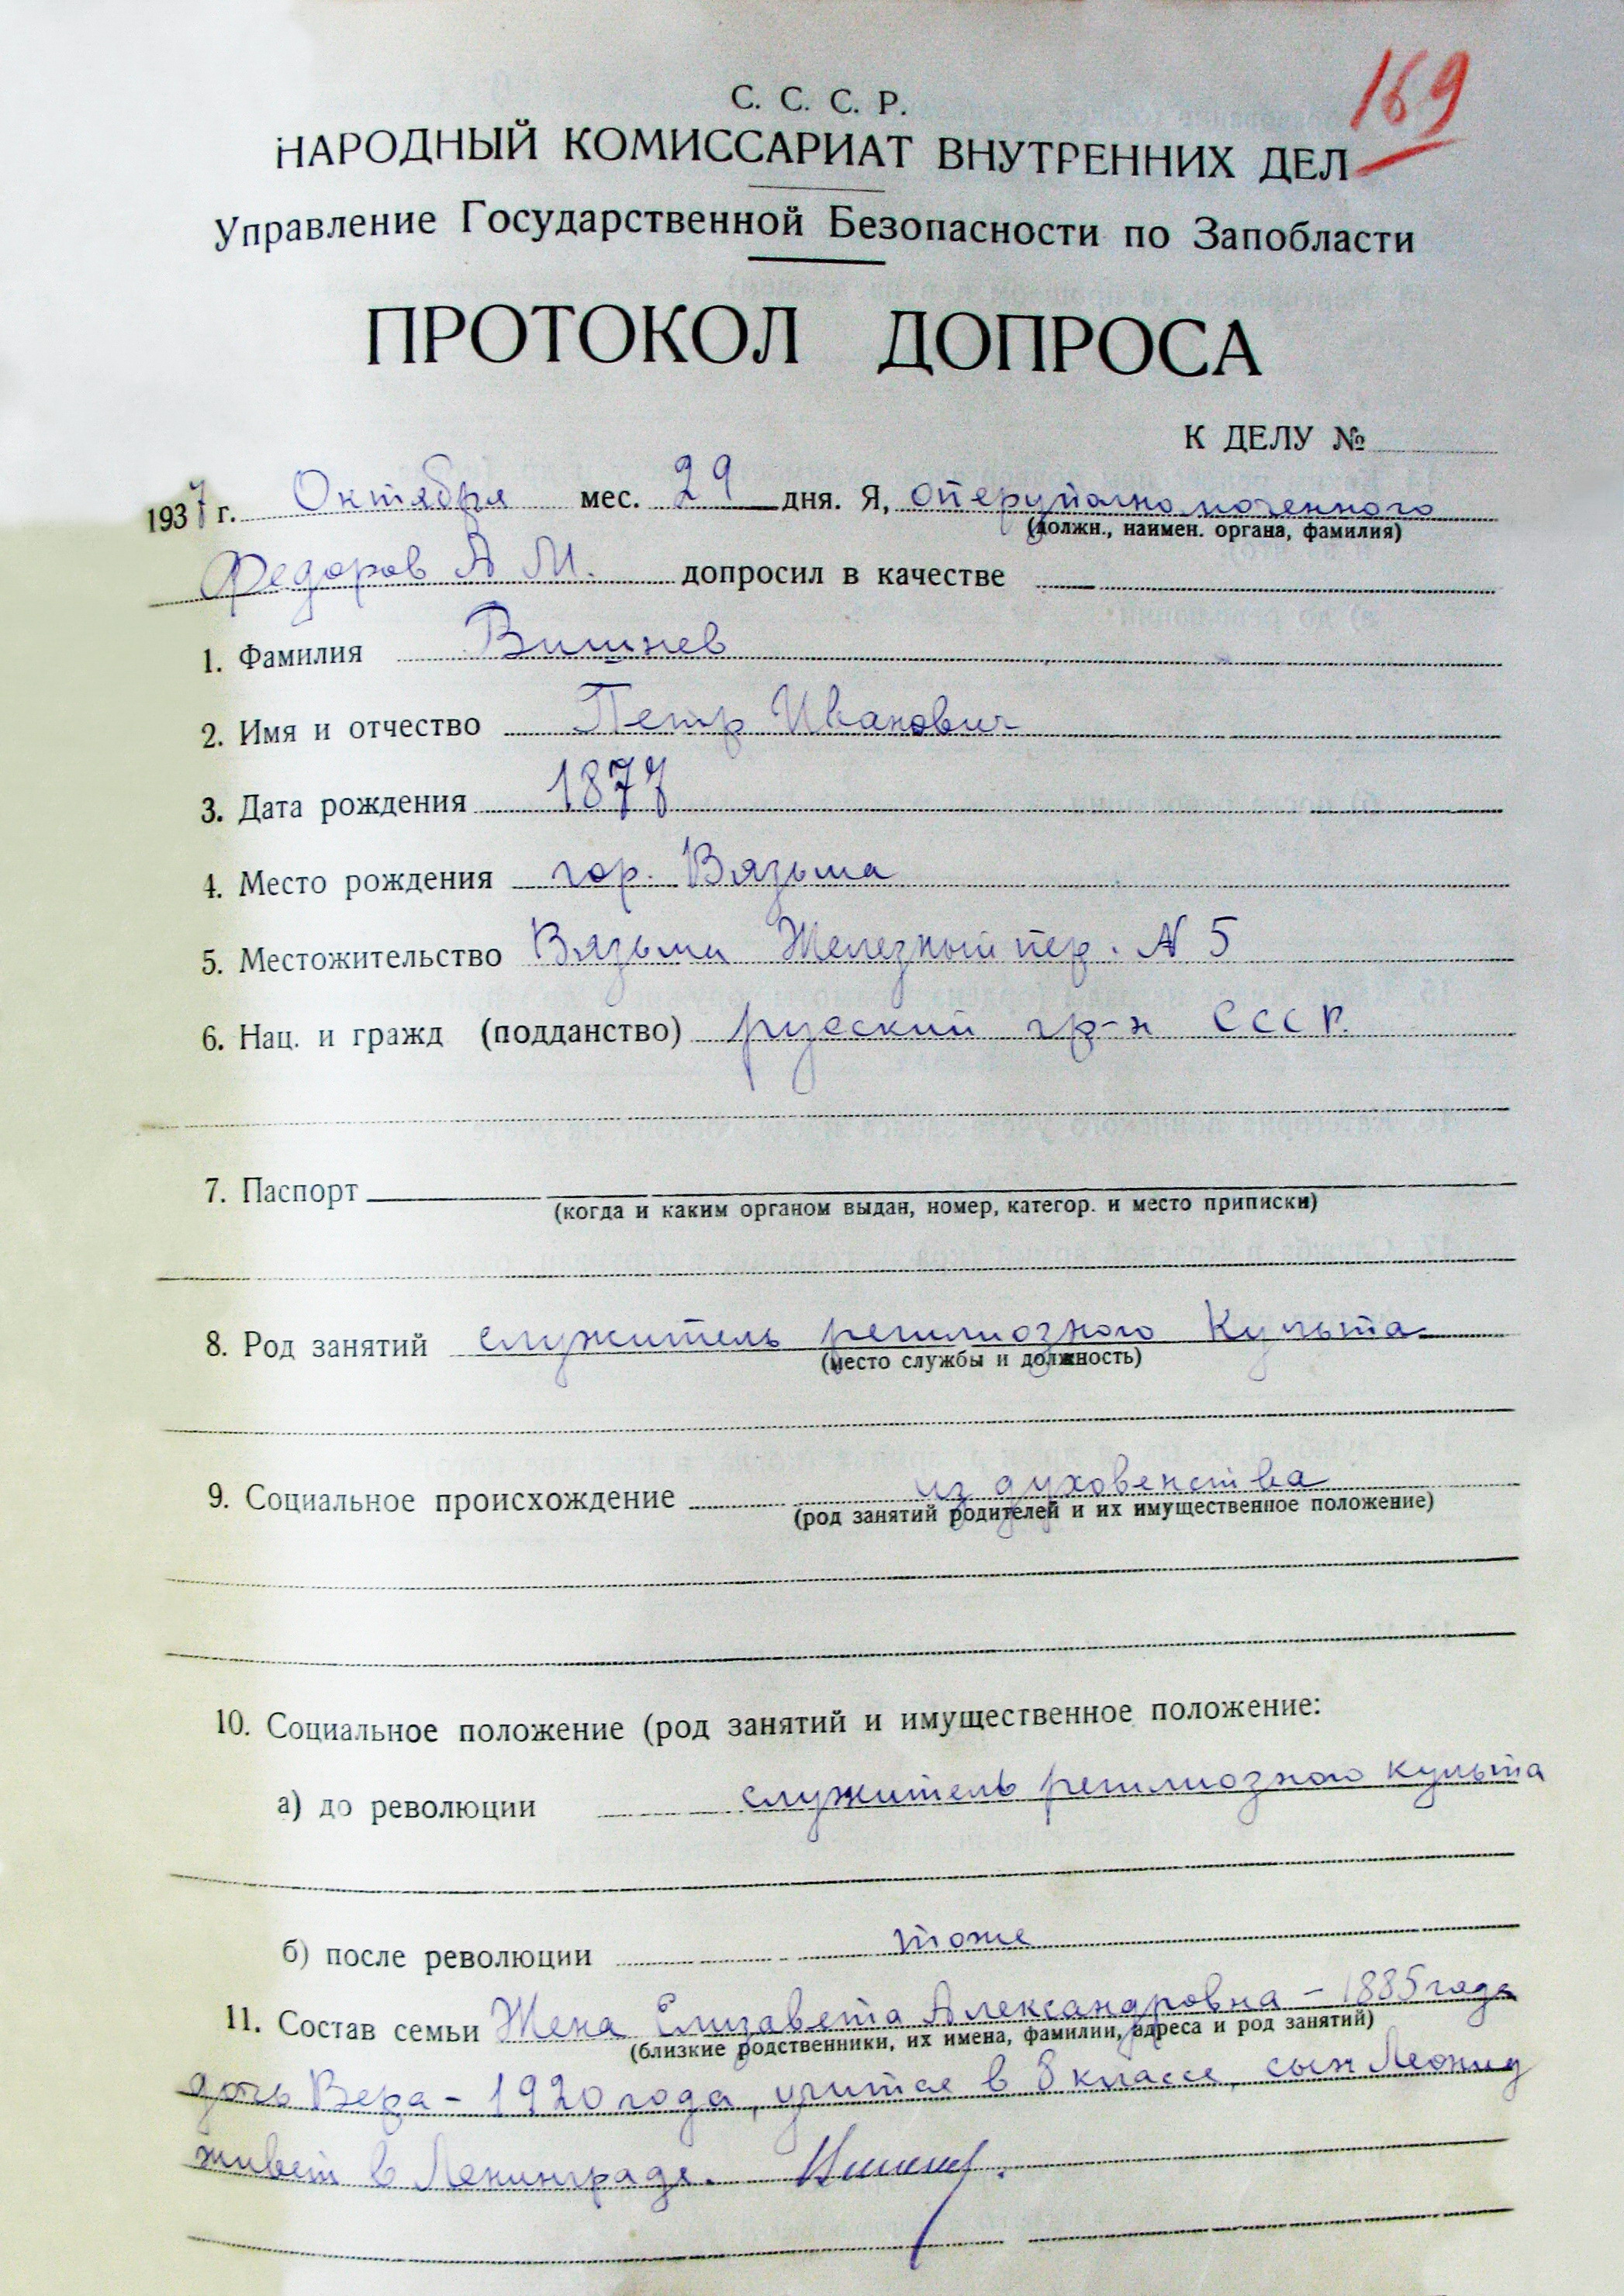 169
С. С. С. Р.
НАРОДНЫЙ КОМИССАРИАТ ВНУТРЕННИХ ДЕЛ
Управление Государственной Безопасности по Запобласти
ПРОТОКОЛ ДОПРОСА
К ДЕЛУ №
1937 г. Октября мес. 29 дня. Я, оперуполномоченного
(должн., наимен. органа, фамилия)
Федоров А М. допросил в качестве
1. Фамилия Вишнев
2. Имя и отчество Петр Иванович
3. Дата рождения 1877
4. Место рождения гор. Вязьма
5. Местожительство Вязьма Железный пер. N 5
6. Нац. и гражд (подданство) русский гр-н СССР.
7. Паспорт
(когда и каким органом выдан, номер, категор. и место приписки)
8. Род занятий служитель религиозного культа
(место службы и должность)
9. Социальное происхождение из духовенства
(род занятий родителей и их имущественное положение)
10. Социальное положение (род занятий и имущественное положение:
а) до революции служитель религиозного культа
б) после революции тоже
11. Состав семьи Жена Елизавета Александровна – 1885 года
(близкие родственники, их имена, фамилии, адреса и род занятий)
дочь Вера – 1920 года, учится в 8 классе, сын Леонид
живет в Ленинграде.